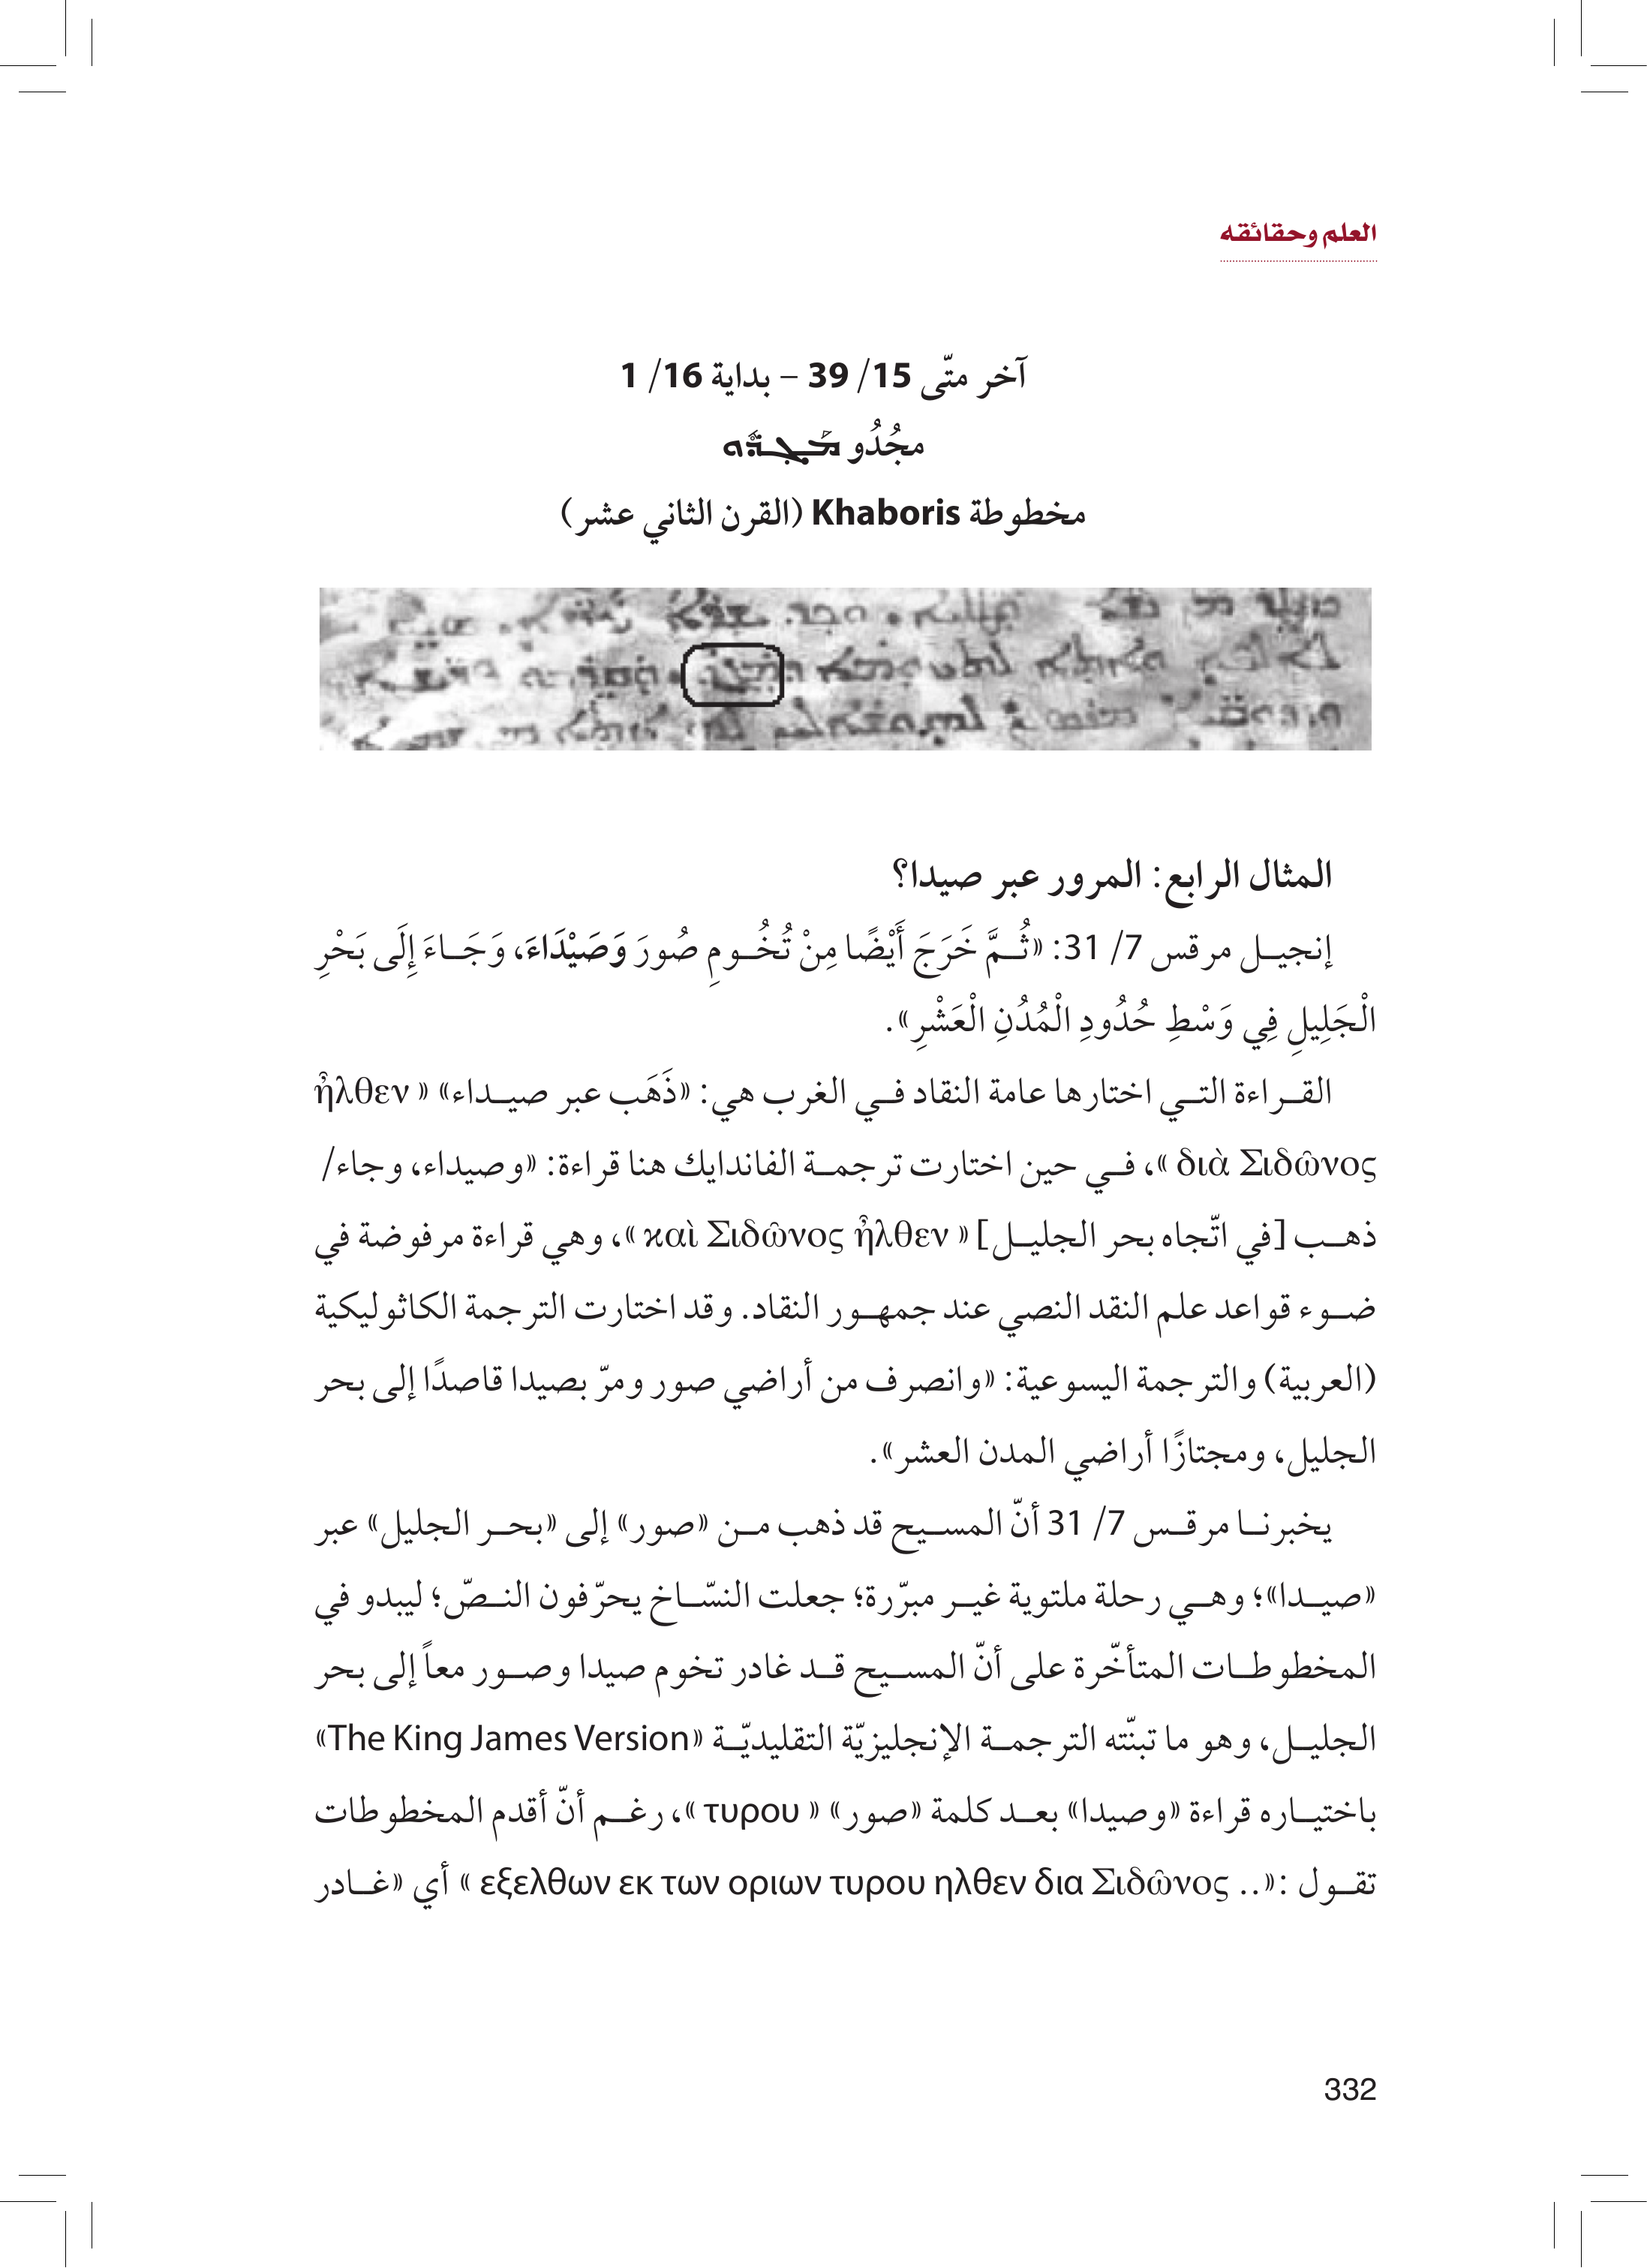 العلم وحقائقه
آخر متّى 15/ 39 – بداية 16/ 1
مجُدُو
مخطوطة Khaboris (القرن الثاني عشر)
المثال الرابع: المرور عبر صيدا؟
إنجيل مرقس 7/ 31: «ثُمَّ خَرَجَ أَيْضًا مِنْ تُخُومِ صُورَ وَصَيْدَاءَ، وَجَاءَ إِلَى بَحْرِ
الْجَلِيلِ فِي وَسْطِ حُدُودِ الْمُدُنِ الْعَشْرِ».
القراءة التي اختارها عامة النقاد في الغرب هي: «ذَهَب عبر صيداء» « ἦλθεν
διὰ Σιδῶνος »، في حين اختارت ترجمة الفاندايك هنا قراءة: «وصيداء، وجاء/
ذهب [في اتّجاه بحر الجليل] « καὶ Σιδῶνος ἦλθεν »، وهي قراءة مرفوضة في
ضوء قواعد علم النقد النصي عند جمهور النقاد. وقد اختارت الترجمة الكاثوليكية
(العربية) والترجمة اليسوعية: «وانصرف من أراضي صور ومرّ بصيدا قاصدًا إلى بحر
الجليل، ومجتازًا أراضي المدن العشر».
يخبرنا مرقس 7/ 31 أنّ المسيح قد ذهب من «صور» إلى «بحر الجليل» عبر
«صيدا»؛ وهي رحلة ملتوية غير مبرّرة؛ جعلت النسّاخ يحرّفون النصّ؛ ليبدو في
المخطوطات المتأخّرة على أنّ المسيح قد غادر تخوم صيدا وصور معاً إلى بحر
الجليل، وهو ما تبنّته الترجمة الإنجليزيّة التقليديّة «The King James Version»
باختياره قراءة «وصيدا» بعد كلمة «صور» « τυρου »، رغم أنّ أقدم المخطوطات
تقول :«.. εξελθων εκ των οριων τυρου ηλθεν δια Σιδῶνος » أي «غادر
332